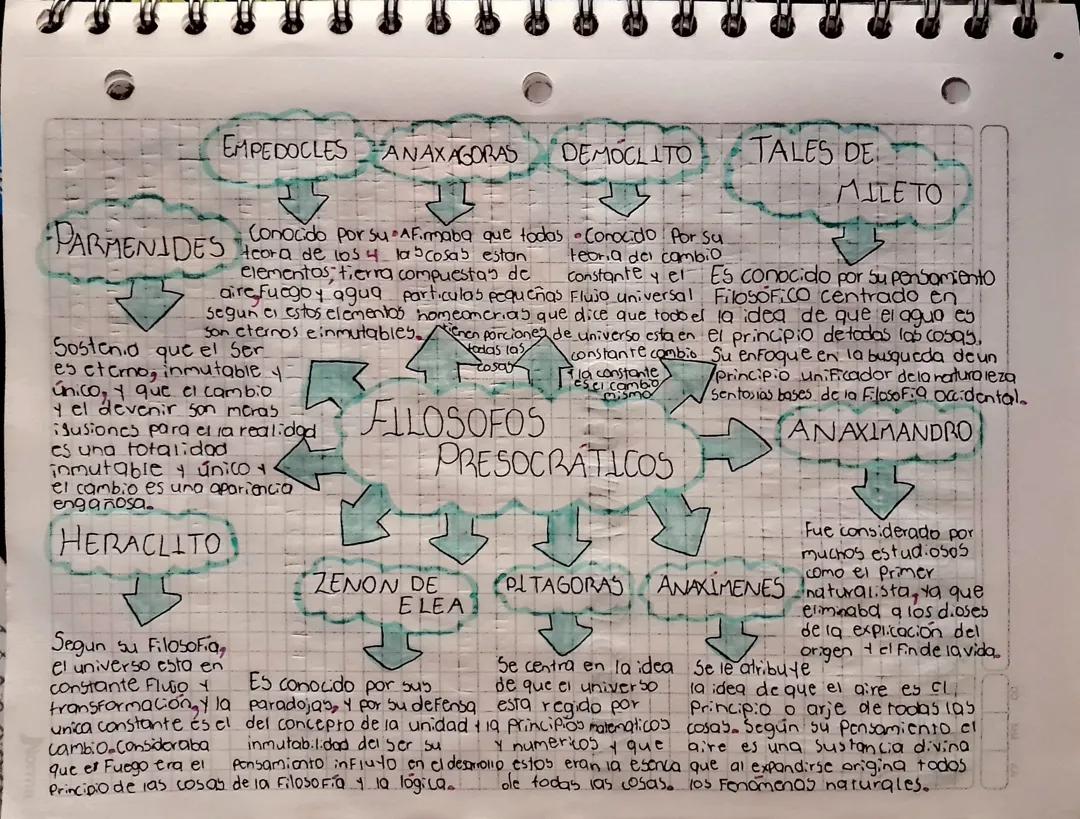 FILOSOFOS
PRESOCRÁTICOS
EMPEDOCLES
Conocido por su
teora de los 4
elementos; tierra
aire, Fuego y agua
segun el estos elementos
son eternos e inmutables.
ANAXAGORAS
• AFirmaba que todas
las cosas estan
compuestas de
particulas pequeñas
homeomerias que
tienen porciones de
todas las
cosas
DEMÓCLITO
• Conocido Por su
teoria del cambio
constante y el
Flujo universal
dice que todo el
universo esta en
constante cambio
y la constante
es el cambio
mismo
TALES DE
MILETO
Es conocido por su pensamiento
Filosófico centrado en
la idea de que el agua es
el principio de todas las cosas.
Su enfoque en la busqueda de un
principio unificador de la naturaleza
sento las bases de la Filosofia occidental.
PARMENIDES
Sostenia que el Ser
es eterno, inmutable y
único, y que el cambio
y el devenir son meras
ilusiones para el la realidad
es una totalidad
inmutable y único y
el cambio es una apariencia
engañosa.
ANAXIMANDRO
Fue considerado por
muchos estudiosos
como el Primer
naturalista, ya que
eliminaba a los dioses
de la explicación del
origen y el Fin de la vida.
HERACLITO
Segun su Filosofía,
el universo esta en
constante Flujo y
transformación, y la
unica constante es el
cambio. Consideraba
que el Fuego era el
Principio de las cosas
ZENON DE
ELEA
Es conocido por sus
paradojas, y por su defensa
del concepto de la unidad y la
inmutabilidad del Ser su
Pensamiento influyo en el desarrollo
de la Filosofía y la lógica.
PITAGORAS
Se centra en la idea
de que el universo
esta regido por
principios matemáticos
y numericos y que
estos eran la esencia
de todas las cosas.
ANAXÍMENES
Se le atribuye
la idea de que el aire es el
Principio o arje de todas las
cosas. Según su Pensamiento el
aire es una sustancia divina
que al expandirse origina todos
los Fenómenos naturales.